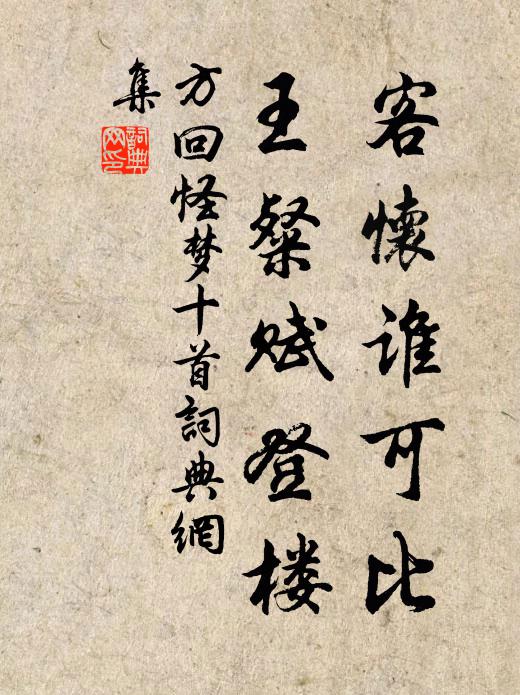 客懷谁可比
王粲赋登楼
方回怪梦十首詞典網
集
詞典
网印